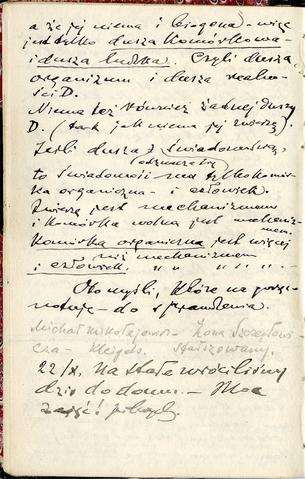 a że jej niema i biegona – więc
jest tylko dusza komórkowa –
i dusza ludzka. Czyli dusza
organizmu i dusza
ści D.
Niema też również żadnej duszy
D. (tak jak niema jej zwierzę).
Jeśli dusza = świadomością,
to świadomość ma tylko komór-
ka organiczna – i człowiek.
Zwierzę jest mechanizmem
i komórka wolna jest mechaniz-
mem.
Komórka organiczna jest więcej
niż mechanizmem
i człowiek. " " " –
Oto myśli, które na
notuję – do sprawdzenia.
Michał Mikołajewicz – żona
cza –
22/X. Na stałe wróciliśmy
dziś do domu. – Moc
zajęć!